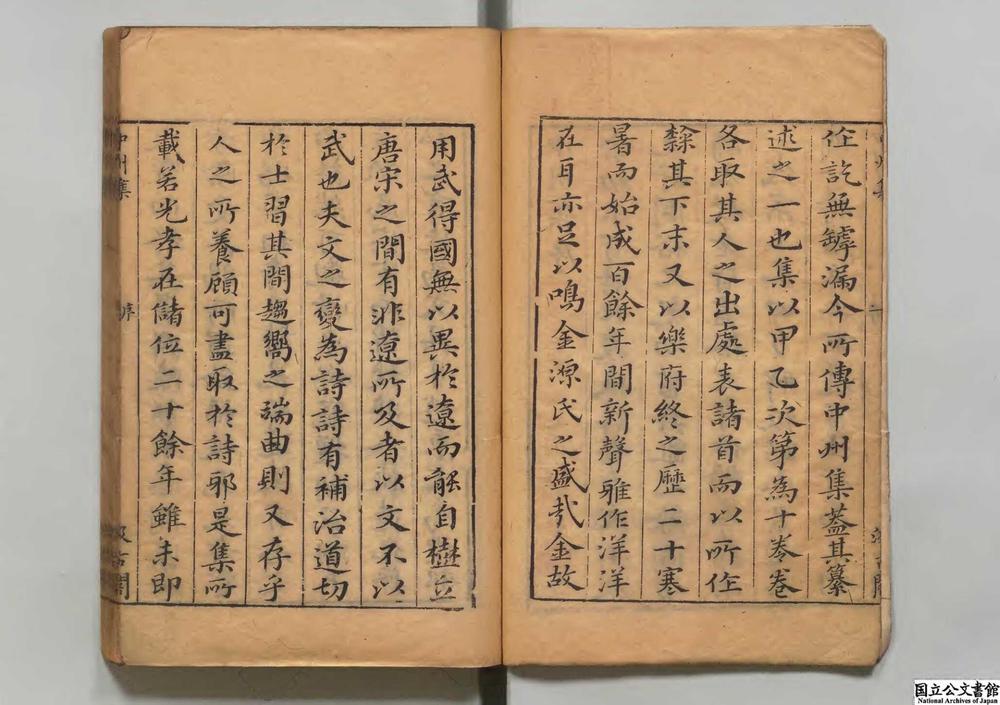 作訖無罅漏今所傳中州集蓋其纂
述之一也集以甲乙次第為十卷卷
各取其人之出處表諸首而以所作
隸其下末又以樂府終之歷二十寒
暑而始成百餘年間新聲雅作洋洋
在耳亦足以鳴金源氏之盛㢤金故
用武得國無以異於遼而能自樹立
唐宋之間有非遼所及者以文不以
武也夫文之變為詩詩有補治道切
於士習其間趨嚮之端曲則又存乎
人之所養顧可盡取於詩邪是集所
載若光孝在儲位二十餘年雖未即
中州集
序
汲古閣
国立公文書館
National Archives of Japan